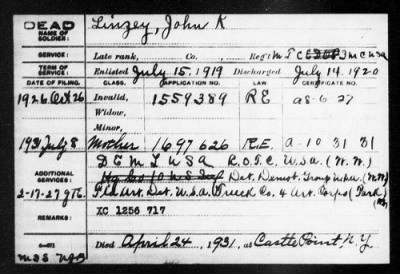 DEAD
NAME OF SOLDIER:
Linzey, John K
SERVICE:
Late rank, Co., Reg't M T C U S A
TERM OF SERVICE:
Enlisted July 15, 1919 Discharged July 14, 1920
DATE OF FILING. CLASS. APPLICATION NO. LAW. CERTIFICATE NO.
1926 Oct 26 Invalid, 1559389 RE a 8-6 27
Widow,
Minor,
1931 July 8 Mother 1697626 R.E. a-10 31 31
ADDITIONAL SERVICES:
D E M L U S A R.O.T.C., U.S.A. (N.M.)
2-17-27
Det. U.S.A. Truck Co. 4 Art. Corps (Park)
REMARKS:
XC 1256 717
Died April 24, 1931, at Castle Point, N.Y.